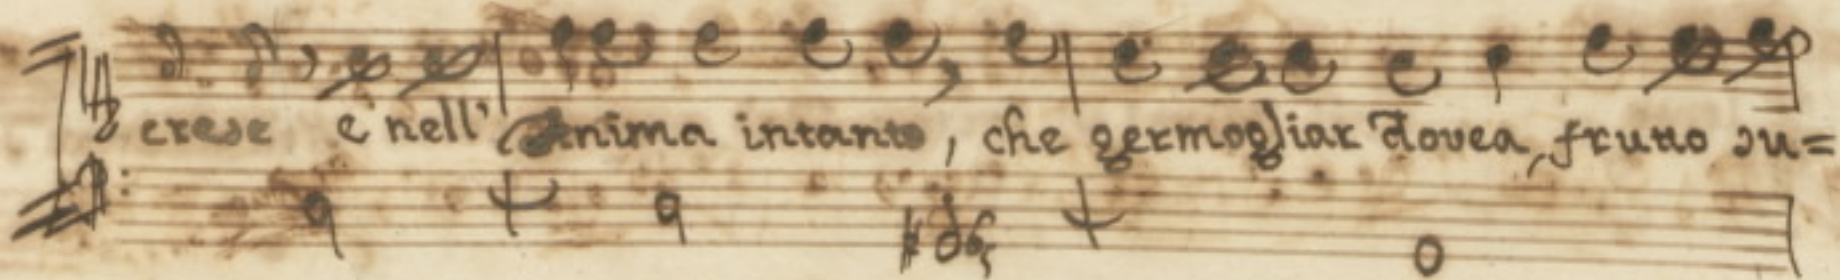 crese e nell' Anima intanto, che germogliar dovea, frutto du=